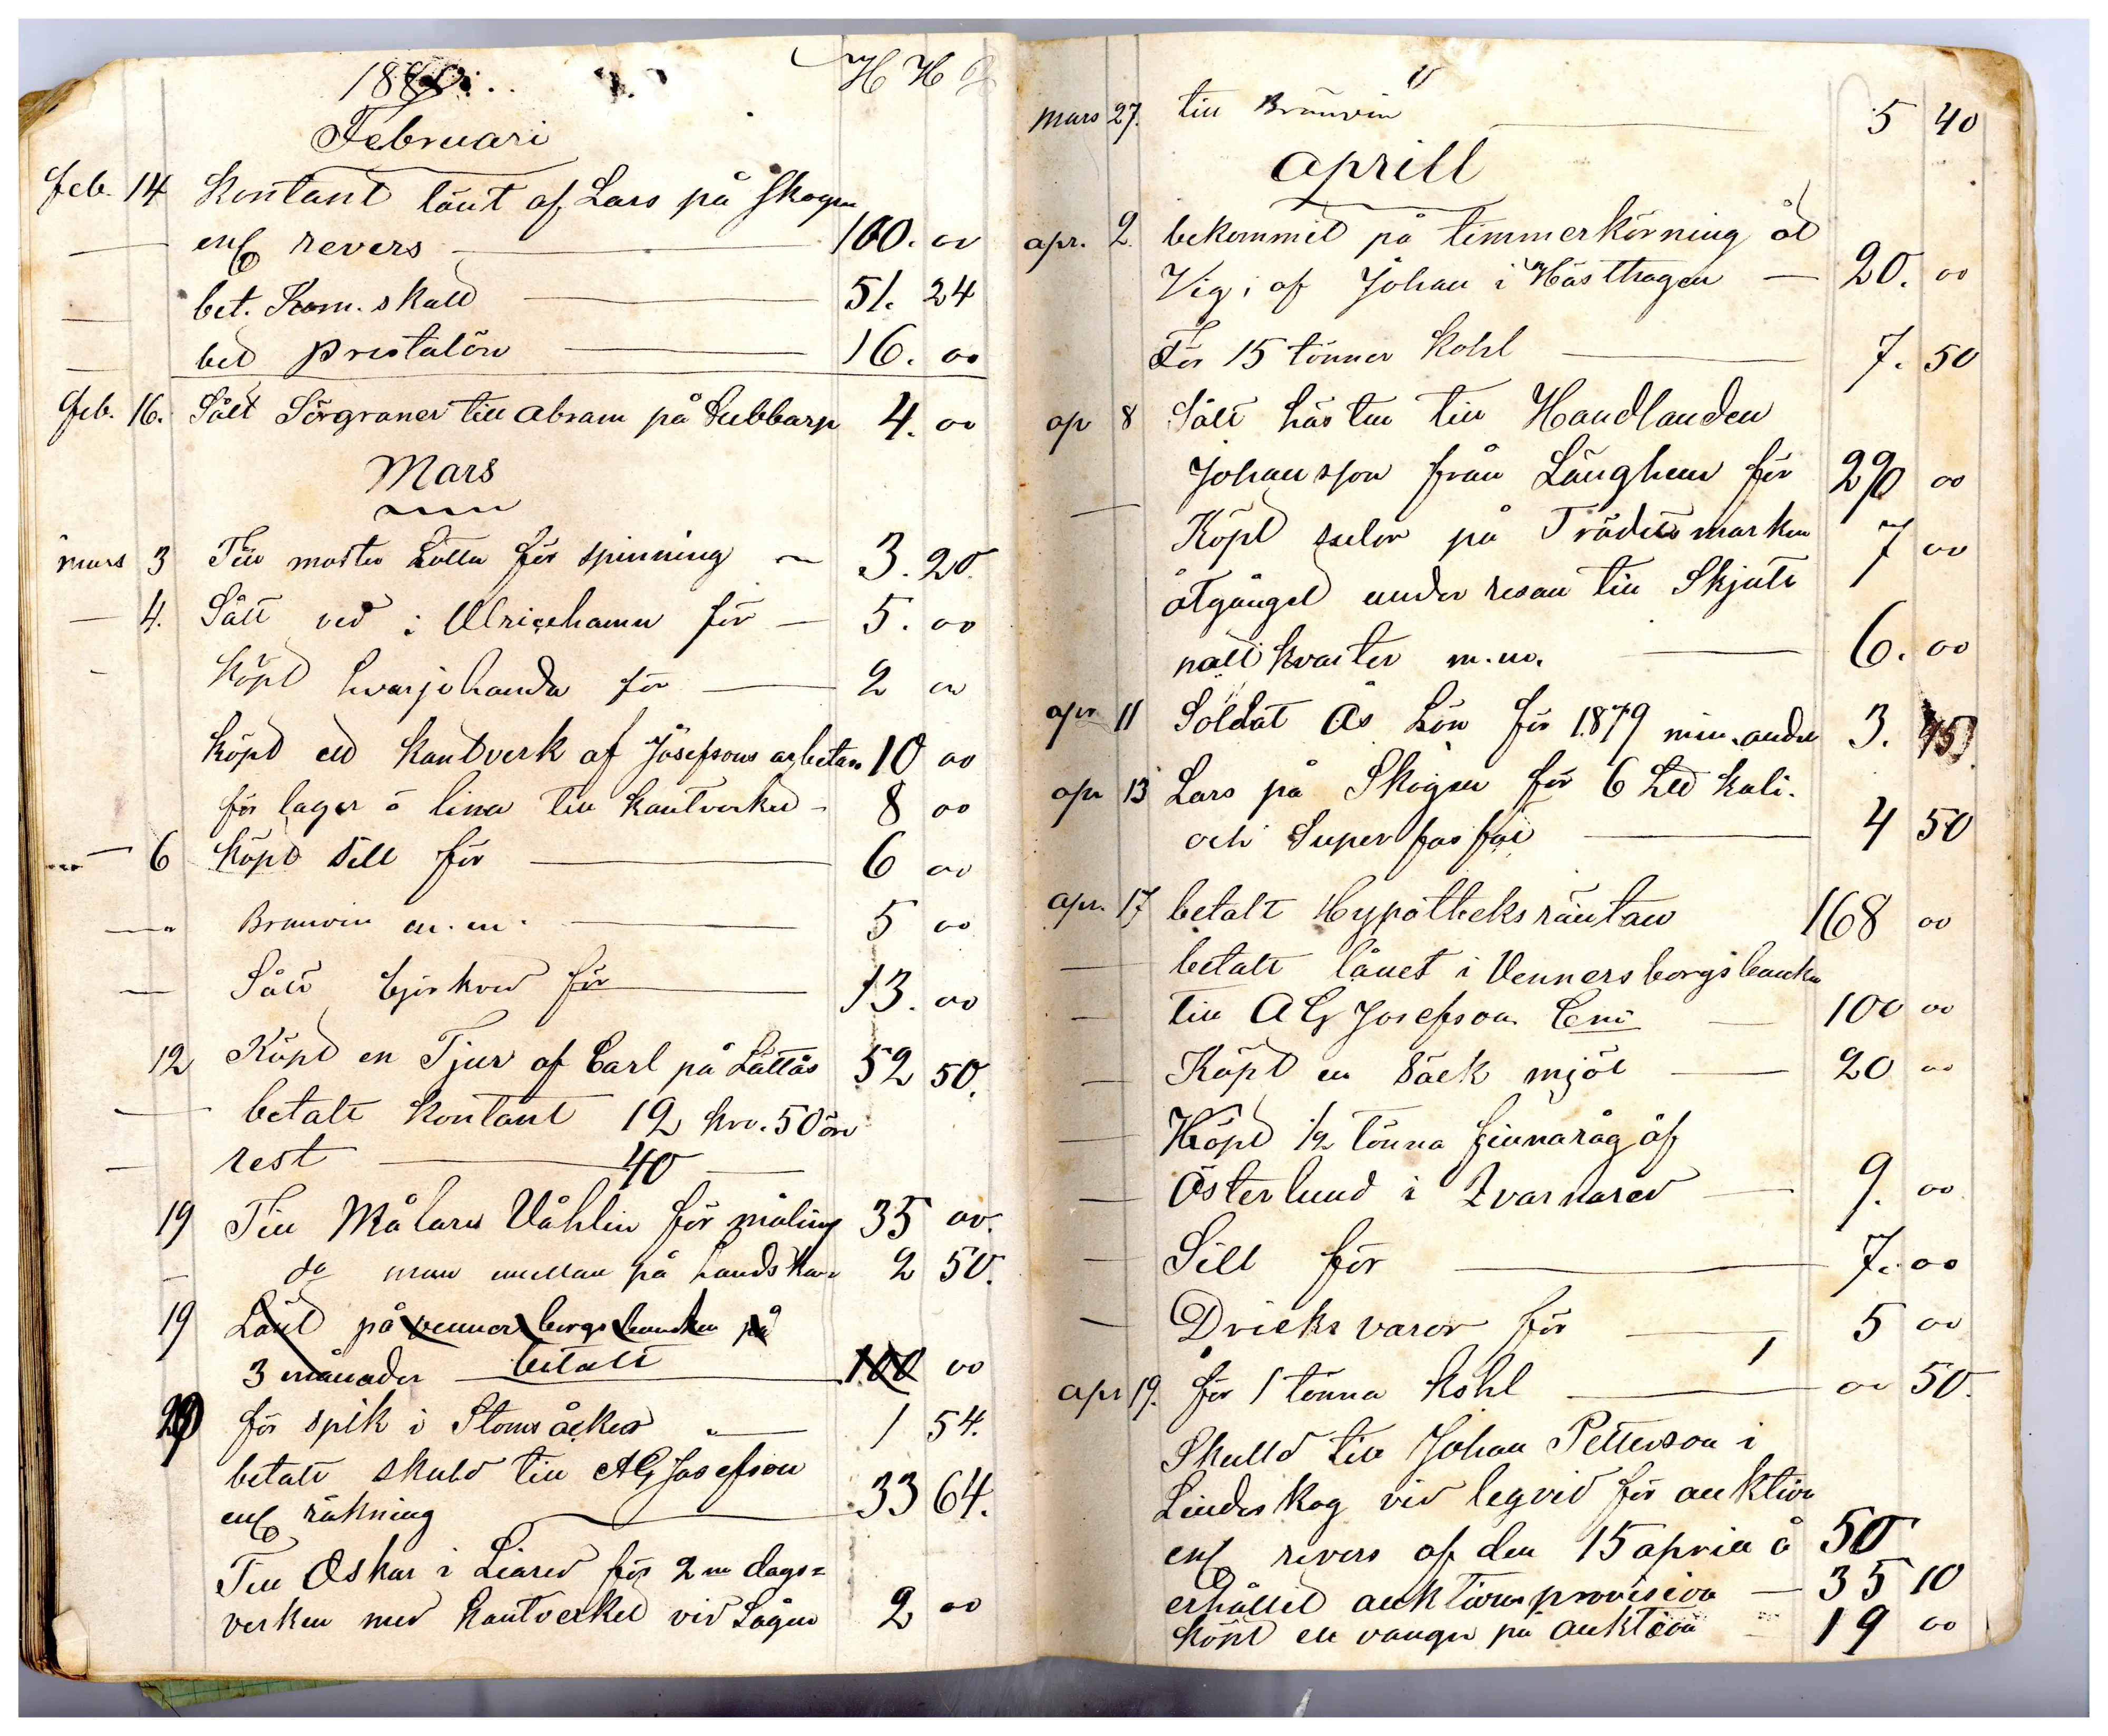 1880
Februari
feb. 14 Kontant lånt af Lars på Skogen
— enl revers — 100. 00
— bet. Kom. skatt — 51. 24
— bet prestalön — 16. 00
feb. 16. Sålt Sörgraner till Abram på Lubbarp 4. 00
Mars
mars 3 Till moster Lotta för spinning 3. 20.
— 4. Sålt ved i Ulricehamn för — 5. 00
— Köpt hvarjehanda för — 2 00
köpt ett kantverk af Josefsons arbetare 10 00
för lager o lina till kantverket - 8 00
— 6 köpt Sill för — 6 00
— Branvin m.m. — 5 00
— Sålt björkved för — 13. 00
12 Köpt en Tjur af Carl på Lättås 52 50.
— betalt kontant 12 kro. 50 öre
— rest — 40 —
19 Till Målare Våhlin för måling 35 00.
— do man emellan på handskar 2 50.
19 Lånt på vennersborgs banken på
3 månader betalt 100 00
20 för spik i Stomsåcker — 1 54.
betalt skuld till AG Josefson
enl räkning — 33 64.
Till Oskar i Liared för 2 ne dags=
verken med kantverket vid Sågen 2 00
mars 27. till Bränvin — 5 40
Aprill
apr. 2. bekommit på timmerkörning åt
Vig; af Johan i Hästhagen — 20. 00
För 15 tönner kohl — 7. 50
ap 8 Sålt hästen till Handlanden
Johansson från Länghem för 290 00
— Köpt selar på Trädetsmarken 7 00
åtgånget under resan till Skjuts
nattkvarter m.m. — 6. 00
apr 11 Soldat Ås Lön för 1879 min andel 3. 45
apr 13 Lars på Skogen för 6 Ltt kali.
och Superfosfat — 4 50
apr. 17 betalt Hypotheksräntan 168 00
— betalt lånet i Vennersborgsbanken
— till A G Josefson — 100 00
— Köpt en Säck mjöl — 20 00
— Köpt 1/2 tönna finnaråg af
— Österlund i Kvarnared — 9. 00
— Sill för — 7. 00
— Dricksvaror för — 5 00
apr 19. för 1 tönna kohl — 00 50.
Skuld till Johan Petterson i
Lindeskog vid legvid för auktion
enl revers af den 15 april å 50
erhållit auktionsprovision — 35 10
köpt en vangn på auktion — 19 00